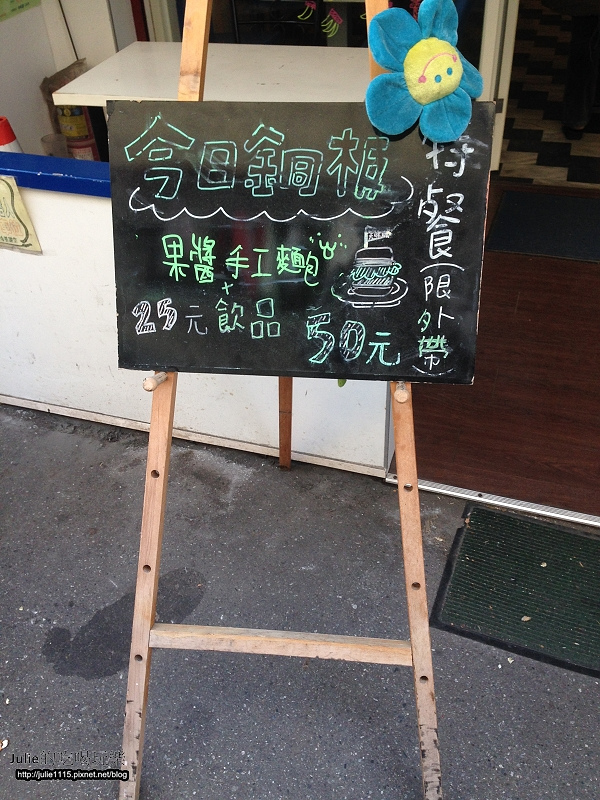 今日銅板
特餐(限外帶)
果醬手工麵包
+
25元飲品 50元
Julie
http://julie1115.pixnet.net/blog